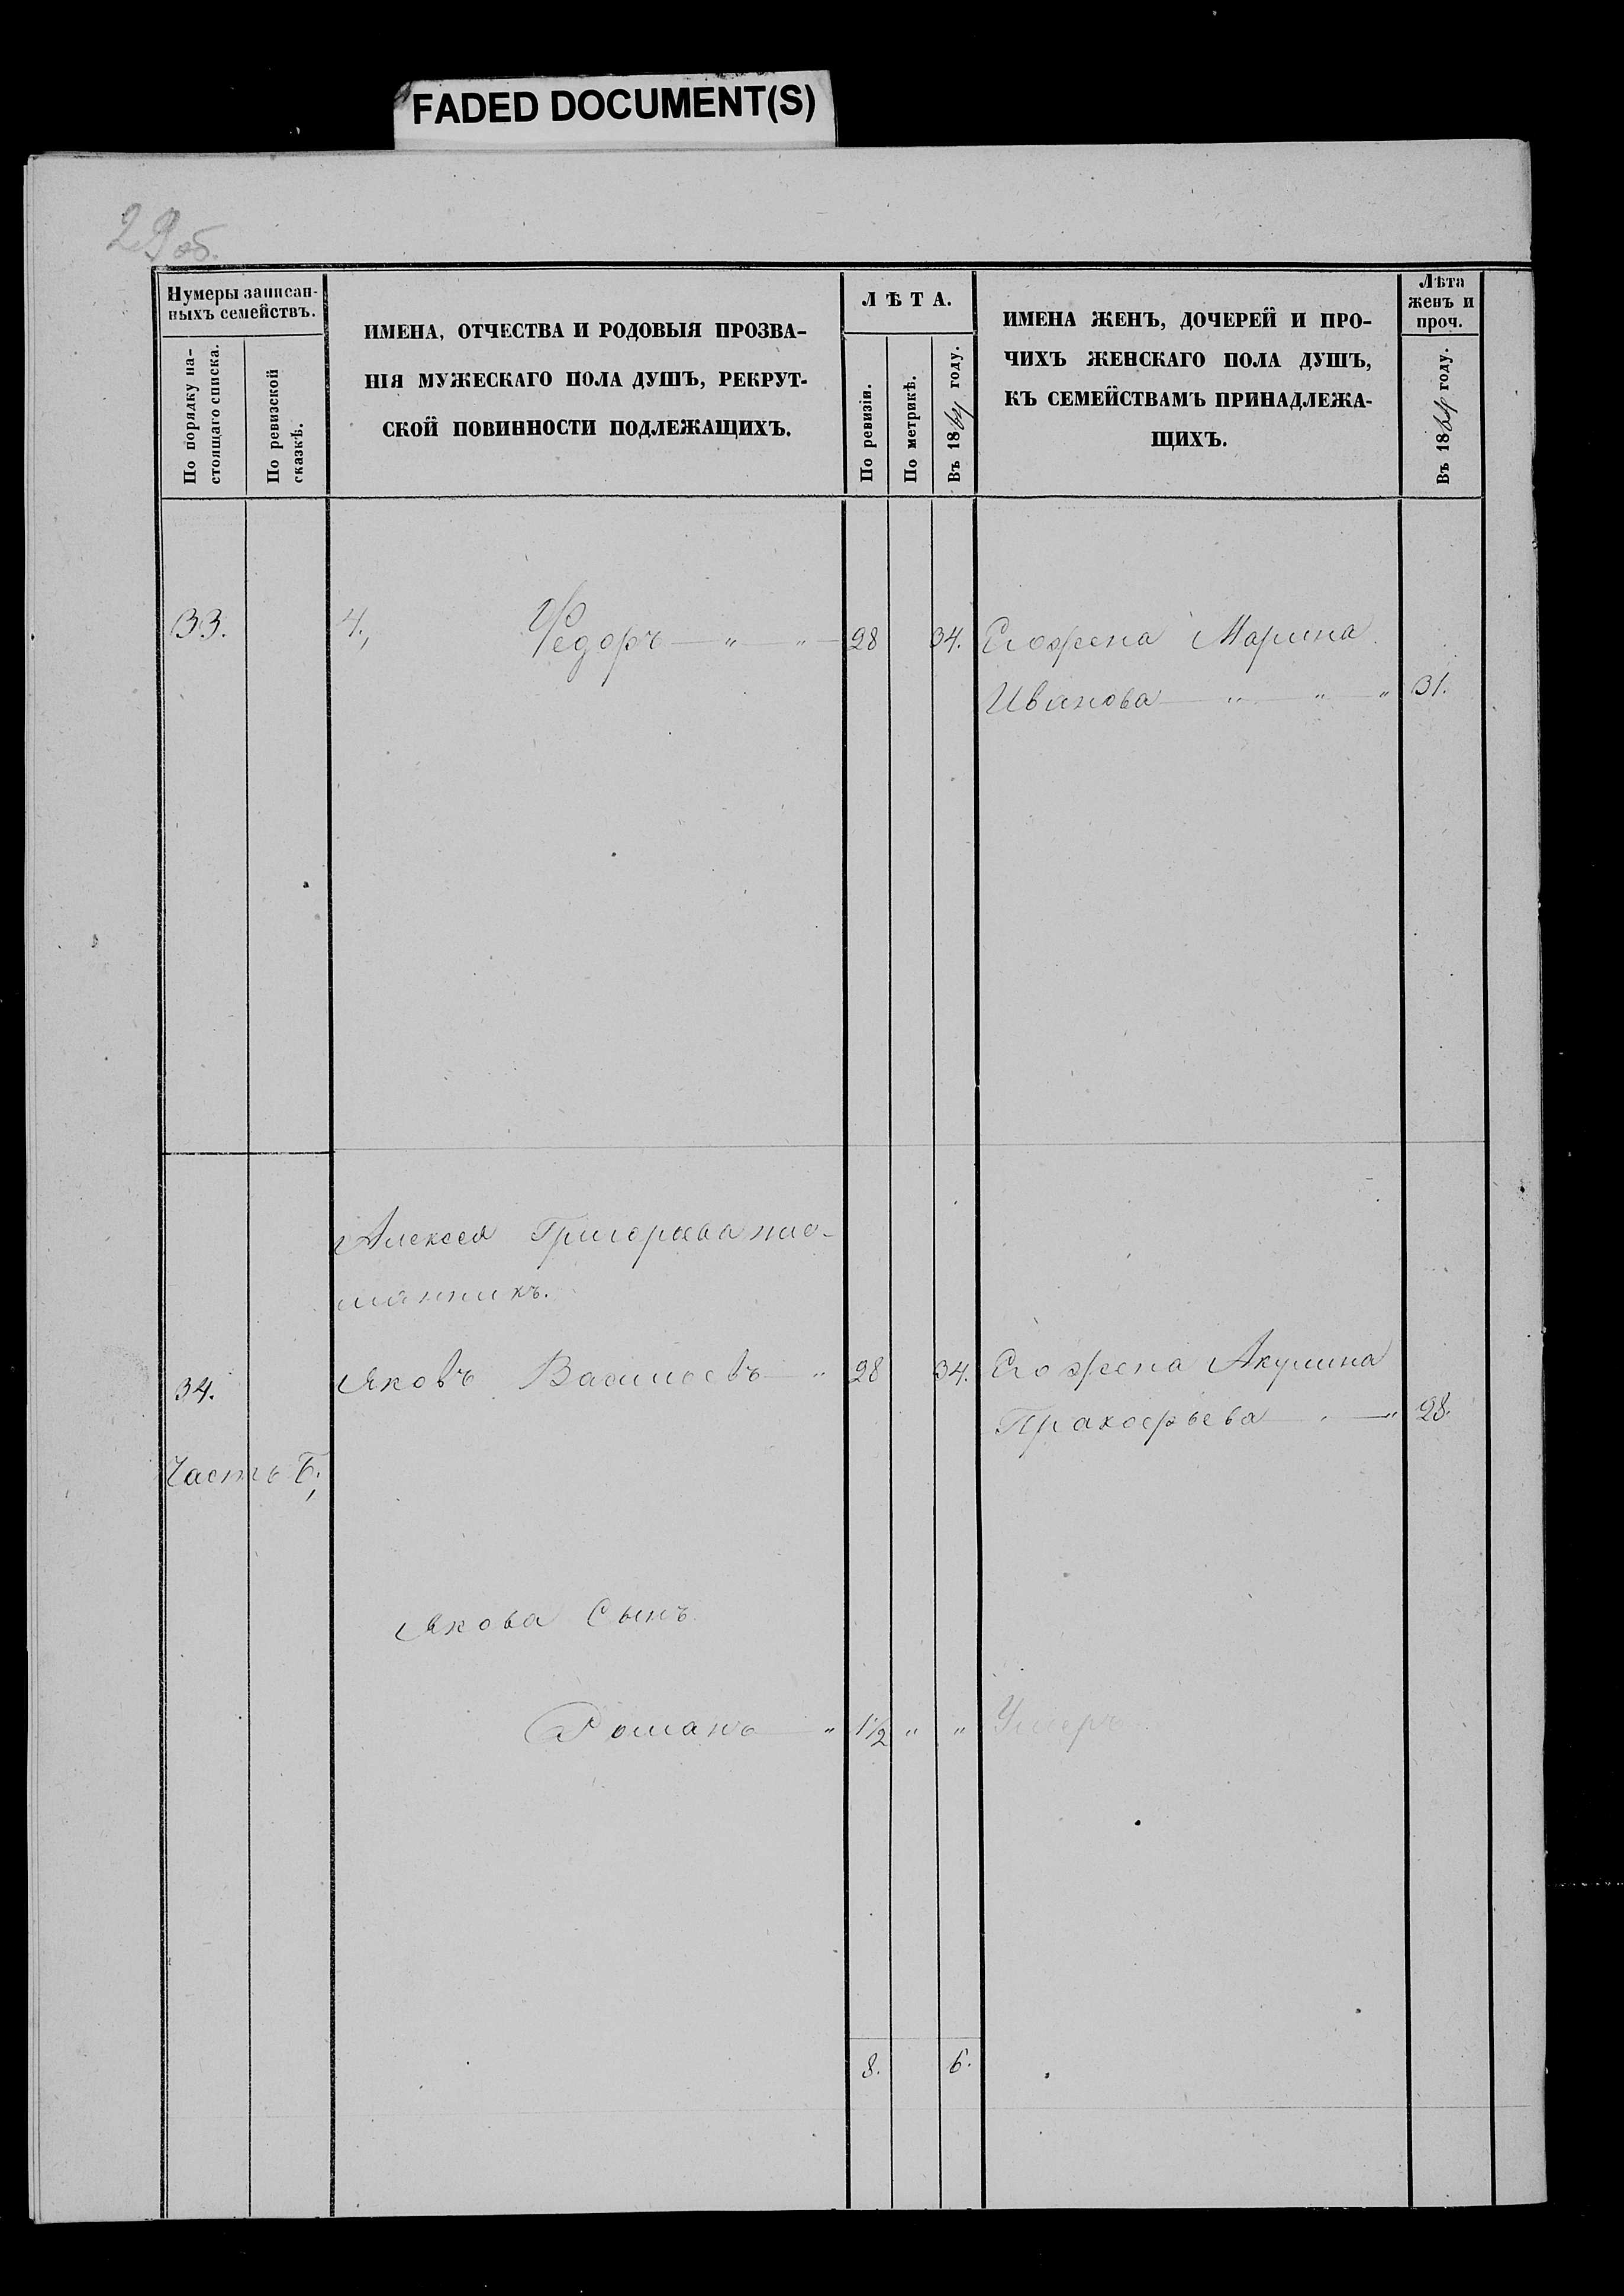 FADED DOCUMENT(S)
29 об.
Нумеры записан-
ныхъ семействъ.
По порядку на-
стоящаго списка.
По ревизской
сказкѣ.
ИМЕНА, ОТЧЕСТВА И РОДОВЫЯ ПРОЗВА-
НІЯ МУЖЕСКАГО ПОЛА ДУШЪ, РЕКРУТ-
СКОЙ ПОВИННОСТИ ПОДЛЕЖАЩИХЪ.
ЛѢТА.
По ревизіи.
По метрикѣ.
Въ 1864 году.
ИМЕНА ЖЕНЪ, ДОЧЕРЕЙ И ПРО-
ЧИХЪ ЖЕНСКАГО ПОЛА ДУШЪ,
КЪ СЕМЕЙСТВАМЪ ПРИНАДЛЕЖА-
ЩИХЪ.
Лѣта
женъ и
проч.
Въ 1864 году.
33. 4., Федоръ — „ — „ — 28 34. Его жена Марина
Иванова — „ — „ — „ 31.
Алексея Григорьева пле-
мянникъ.
34. Яковъ Васильевъ — „ 28 34. Его жена Акулина
Пракофьева — „ 28.
Часть Б.,
Якова Сынъ
Романъ — „ 1½ „ „ Умеръ
8. 6.